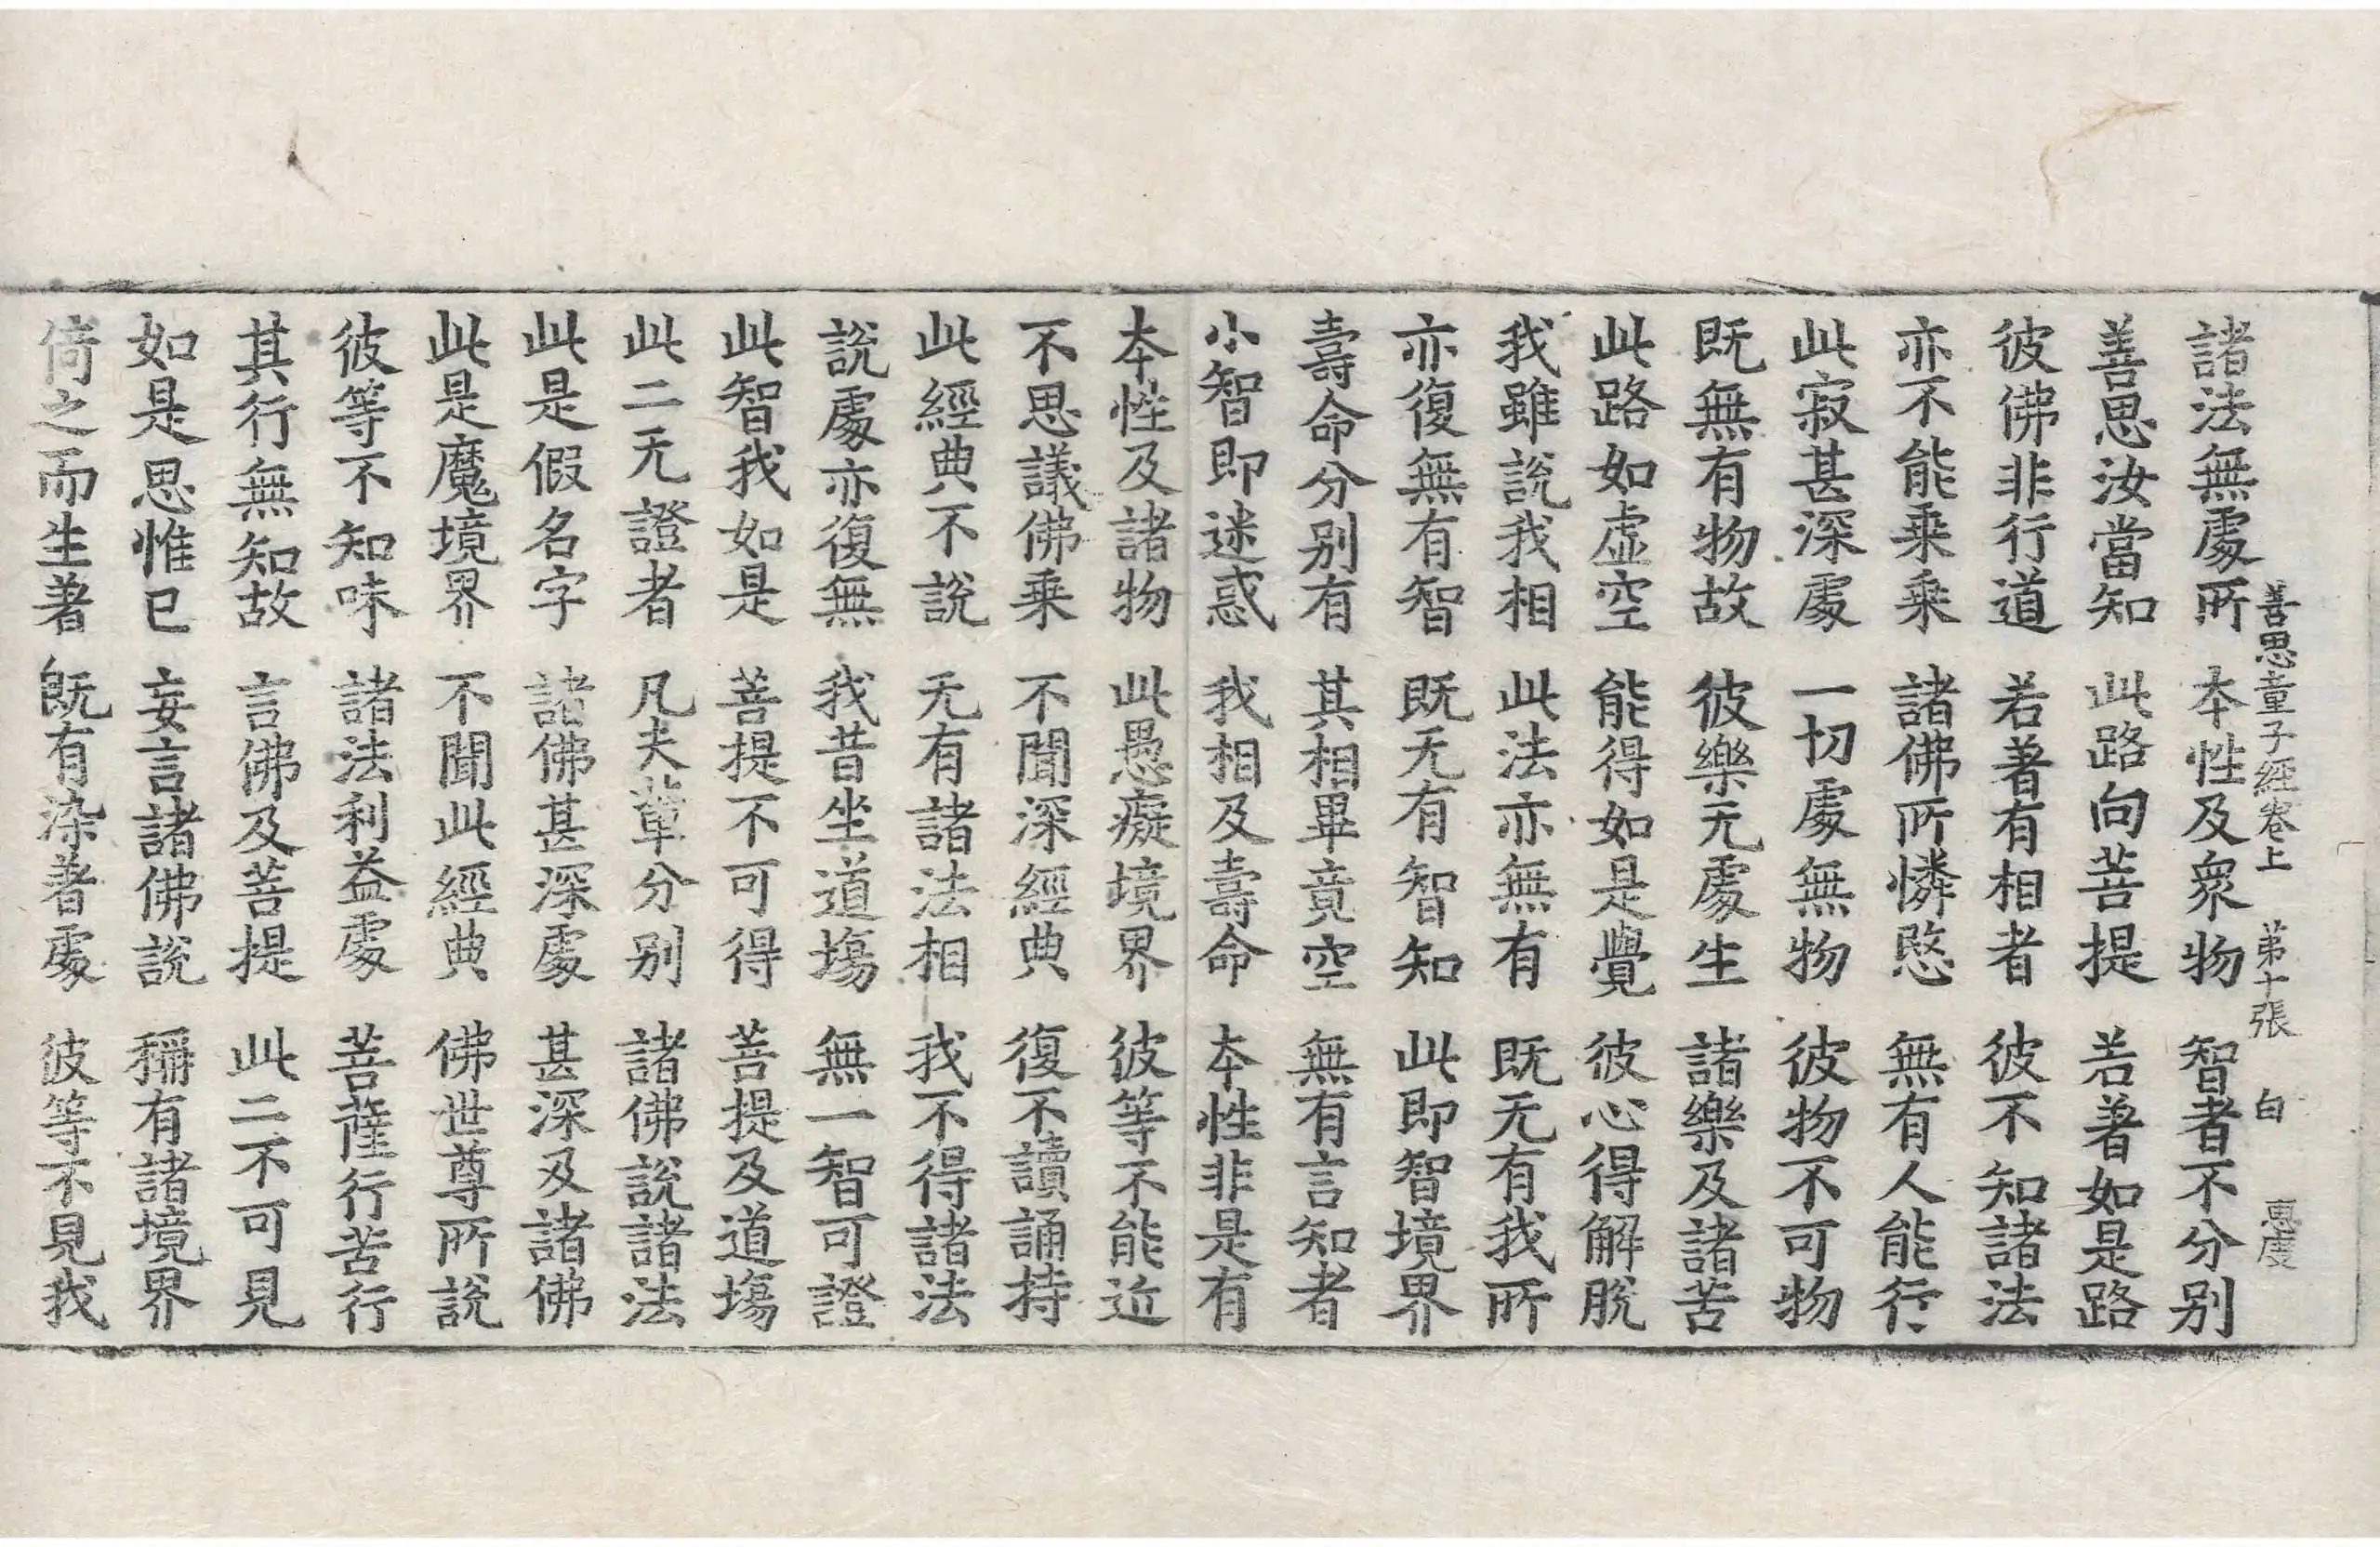 善思童子經卷上 第十張 白 惠度
諸法無處所 本性及衆物 智者不分别
善思汝當知 此路向菩提 若著如是路
彼佛非行道 若著有相者 彼不知諸法
亦不能乘乘 諸佛所憐愍 無有人能行
此寂甚深處 一切處無物 彼物不可物
既無有物故 彼樂无處生 諸樂及諸苦
此路如虛空 能得如是覺 彼心得解脫
我雖說我相 此法亦無有 既无有我所
亦復無有智 既无有智知 此即智境界
壽命分别有 其相畢竟空 無有言知者
小智即迷惑 我相及壽命 本性非是有
本性及諸物 此愚癡境界 彼等不能近
不思議佛乘 不聞深經典 復不讀誦持
此經典不說 无有諸法相 我不得諸法
說處亦復無 我昔坐道場 無一智可證
此智我如是 菩提不可得 菩提及道場
此二无證者 凡夫輩分别 諸佛說諸法
此是假名字 諸佛甚深處 甚深及諸佛
此是魔境界 不聞此經典 佛世尊所說
彼等不知味 諸法利益處 菩薩行苦行
其行無知故 言佛及菩提 此二不可見
如是思惟已 妄言諸佛說 稱有諸境界
倚之而生著 既有染著處 彼等不見我